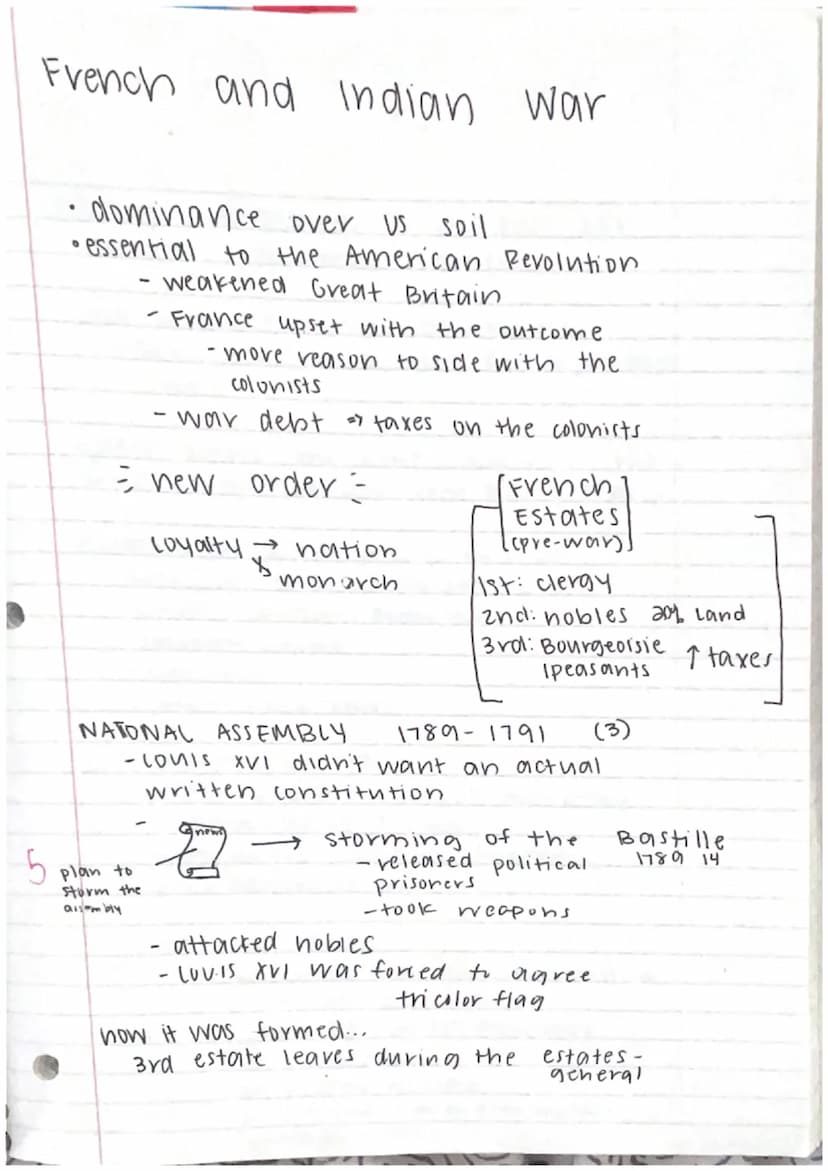 French and Indian War
• dominance over US soil
• essential to the American Revolution
- weakened Great Britain
- France upset with the outcome
- more reason to side with the
colonists
- war debt => taxes on the colonists
new order
loyalty → nation
monarch
[French]
Estates
(pre-war)
1st: clergy
2nd: nobles 20% land
3rd: Bourgeoisie
/peasants ↑ taxes
NATONAL ASSEMBLY 1789-1791 (3)
- Louis XVI didn't want an actual
written constitution
-
news → storming of the Bastille
1789 14
- released political
prisoners
- took weapons
5 plan to
storm the
assembly
- attacked nobles
- Louis XVI was forced to agree
tricolor flag
how it was formed...
3rd estate leaves during the estates-
general